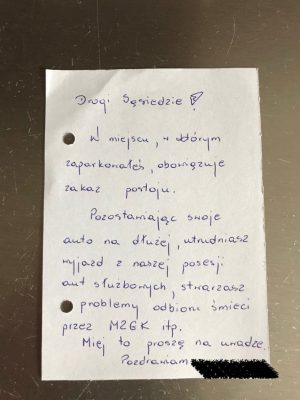 Drogi Sąsiedzie!
W miejscu, w którym
zaparkowałeś, obowiązuje
zakaz postoju.
Pozostawiając swoje
auto na dłużej, utrudniasz
wyjazd z naszej posesji
aut służbowych, stwarzasz
problemy odbioru śmieci
przez MZGK itp.
Miej to proszę na uwadze.
Pozdrawiam